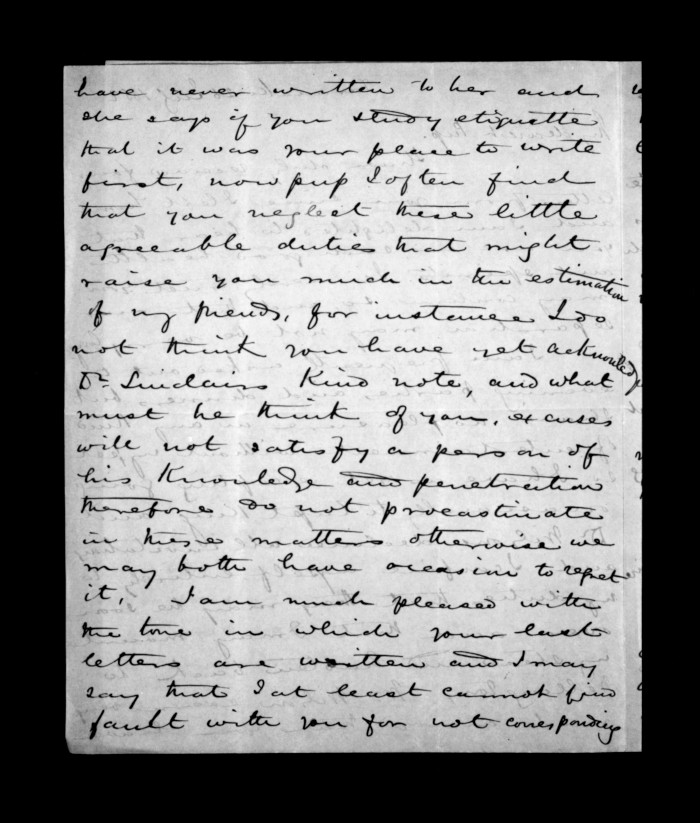 have never written to her and
she says if you study etiquette
that it was your place to write
first, now pup I often find
that you neglect these little
agreeable duties that might
raise you much in the estimation
of my friends, for instance I do
not think you have yet acknowledg
Dr Sinclairs Kind note, and what
must he think of you, excuses
will not satisfy a person of
his Knowledge and penetration
therefore do not procastinate
in these matters otherwise we
may both have occasion to regret
it. I am much pleased with
the tone in which your last
letters are written and I may
say that I at least cannot find
fault with you for not corresponding